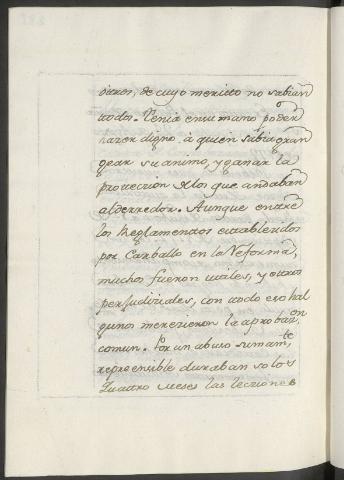 otros, de cuyo merito no sabian
todos. Tenia en su mano poder
hazer digno à quien sabia gran
gear su animo, y ganar la
proteccion de los que andaban
alderredor. Aunque entre
los Reglamentos establecidos
por Carballo en la Reforma,
muchos fueron utiles, y otros
perjudiziales, con todo eso hal
gunos merezieron la aprobazon
comun. Por un abuso sumamte
reprensible duraban solos
Quatro meses las lecziones